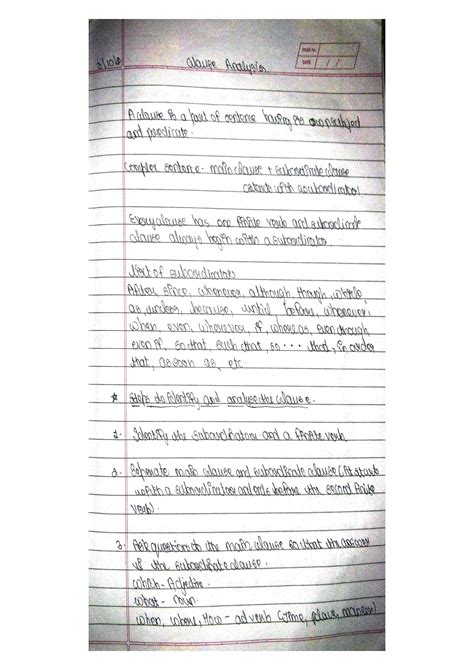 PAGE No.
DATE
2/10/6
clause Analysis.
A clause is a part of sentence having its own subject
and predicate.
Complex sentence - main clause + subordinate clause
(starts with a subordinator)
Every clause has one finite verb and subordinate
clause always begin with a subordinator
List of subordinators
After, since, whenever, although, though, while,
as, unless, because, until, before, whenever,
when, even, wherever, if, where, as, even though,
even if, so that, such that, so ... that, in order
that, as soon as, etc.
* Steps to identify and analyse the clause.
1- Identify the subordinators and a finite verb
2- Seperate main clause and subordinate clause (it starts
with a subordinator and ends before the second finite
verb)
3- Ask questions to the main clause so that the answer
is the subordinate clause.
which - Adjective
what - noun
when, where, How - adverb (time, place, manner)